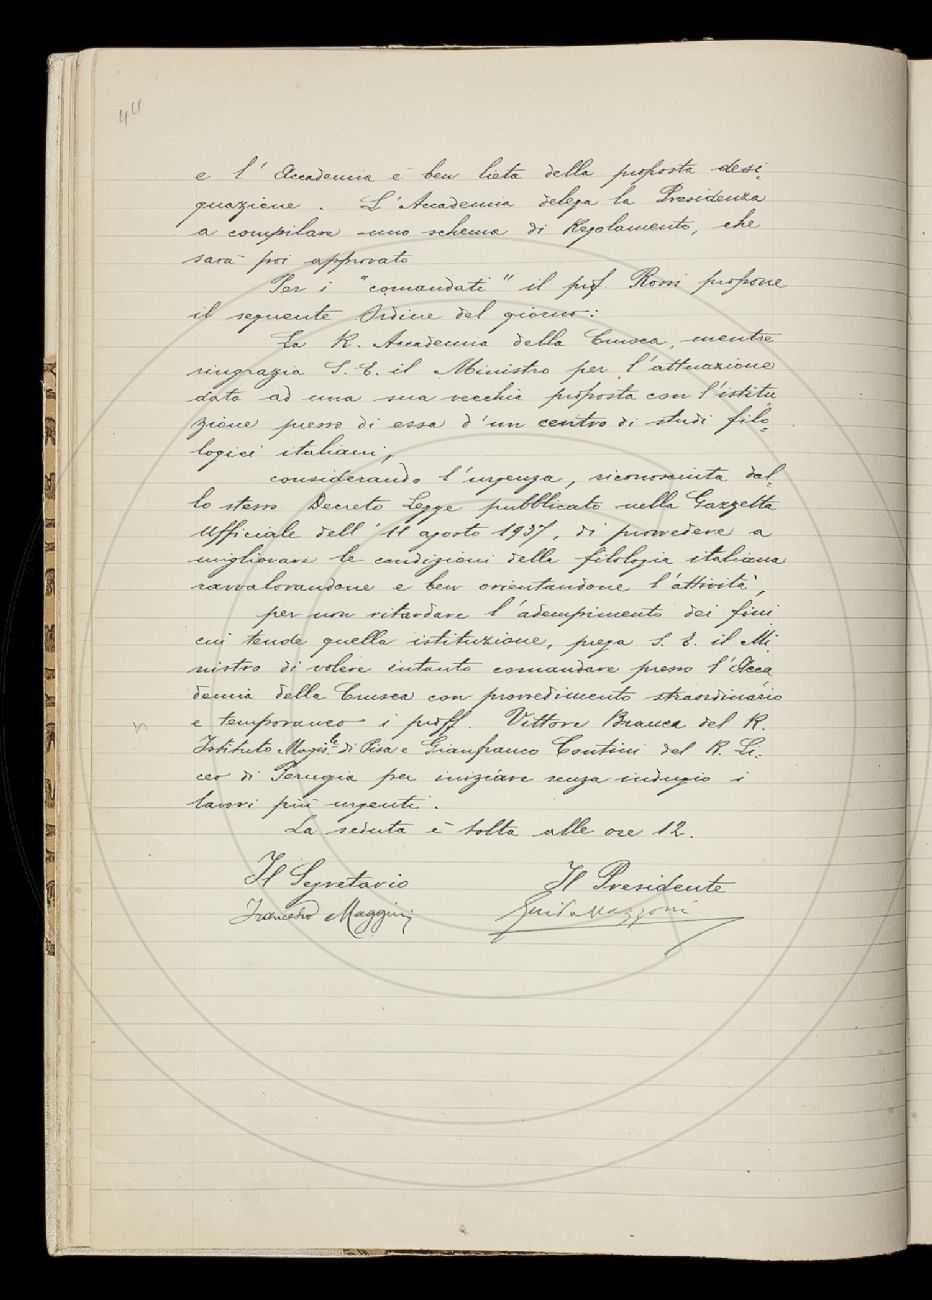 44
e l'Accademia è ben lieta della proposta desi=
gnazione. L'Accademia delega la Presidenza
a compilare uno schema di Regolamento, che
sarà poi approvato
Per i "comandati" il prof. Rossi propone
il seguente Ordine del giorno:
La R. Accademia della Crusca, mentre
ringrazia S. E. il Ministro per l'attuazione
data ad una sua vecchia proposta con l'istitu=
zione presso di essa d'un centro di studi filo=
logici italiani,
considerando l'urgenza, riconosciuta dal=
lo stesso Decreto Legge pubblicato nella Gazzetta
Ufficiale dell'11 agosto 1937, di provvedere a
migliorare le condizioni della filologia italiana
ravvalorandone e ben orientandone l'attività,
per non ritardare l'adempimento dei fini
cui tende quella istituzione, prega S. E. il Mi=
nistro di volere intanto comandare presso l'Acca
demia della Crusca con provvedimento straordinario
e temporaneo i proff. Vittore Branca del R.
Istituto Magis.le di Pisa e Gianfranco Contini del R. Li=
ceo di Perugia per iniziare senza indugio i
lavori più urgenti.
La seduta è tolta alle ore 12.
Il Segretario Il Presidente
Francesco Maggini Guido Mazzoni